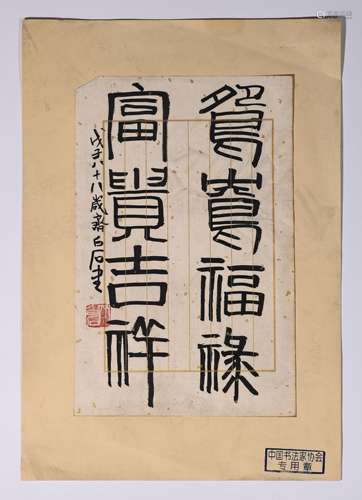 鴛鴦福祿
富貴吉祥
戊子八十八歲齊白石書
中国书法家协会
专用章